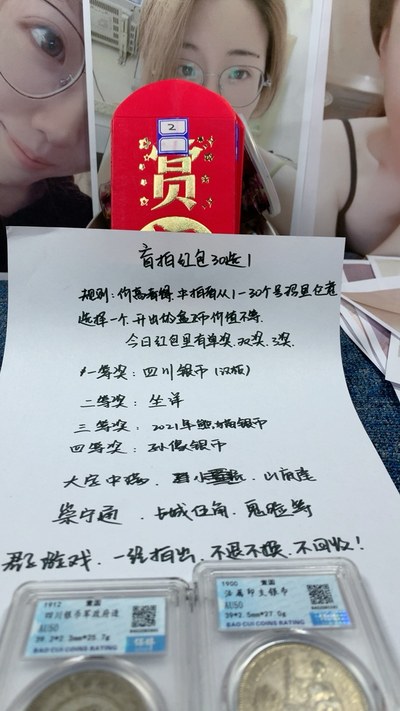 2
赏
盲拍红包30选1
规则：价高者得，中拍者从1-30个号码里任意
选择一个，开出的盒子币价值不等。
今日红包里有单奖，双奖，3奖。
一等奖：四川银币（汉版）
二等奖：坐洋
三等奖：2021年熊猫银币
四等奖：孙像银币
崇宁通 长城伍角
群游戏，一经拍出，不退不换，不回收！
1912 董藏
四川银币军政府造
AU50
39.2*2.3mm*25.7g
BAO CUI COINS RATING
1900 董藏
法属印支银币
AU50
39*2.5mm*27.0g
BAO CUI COINS RATING